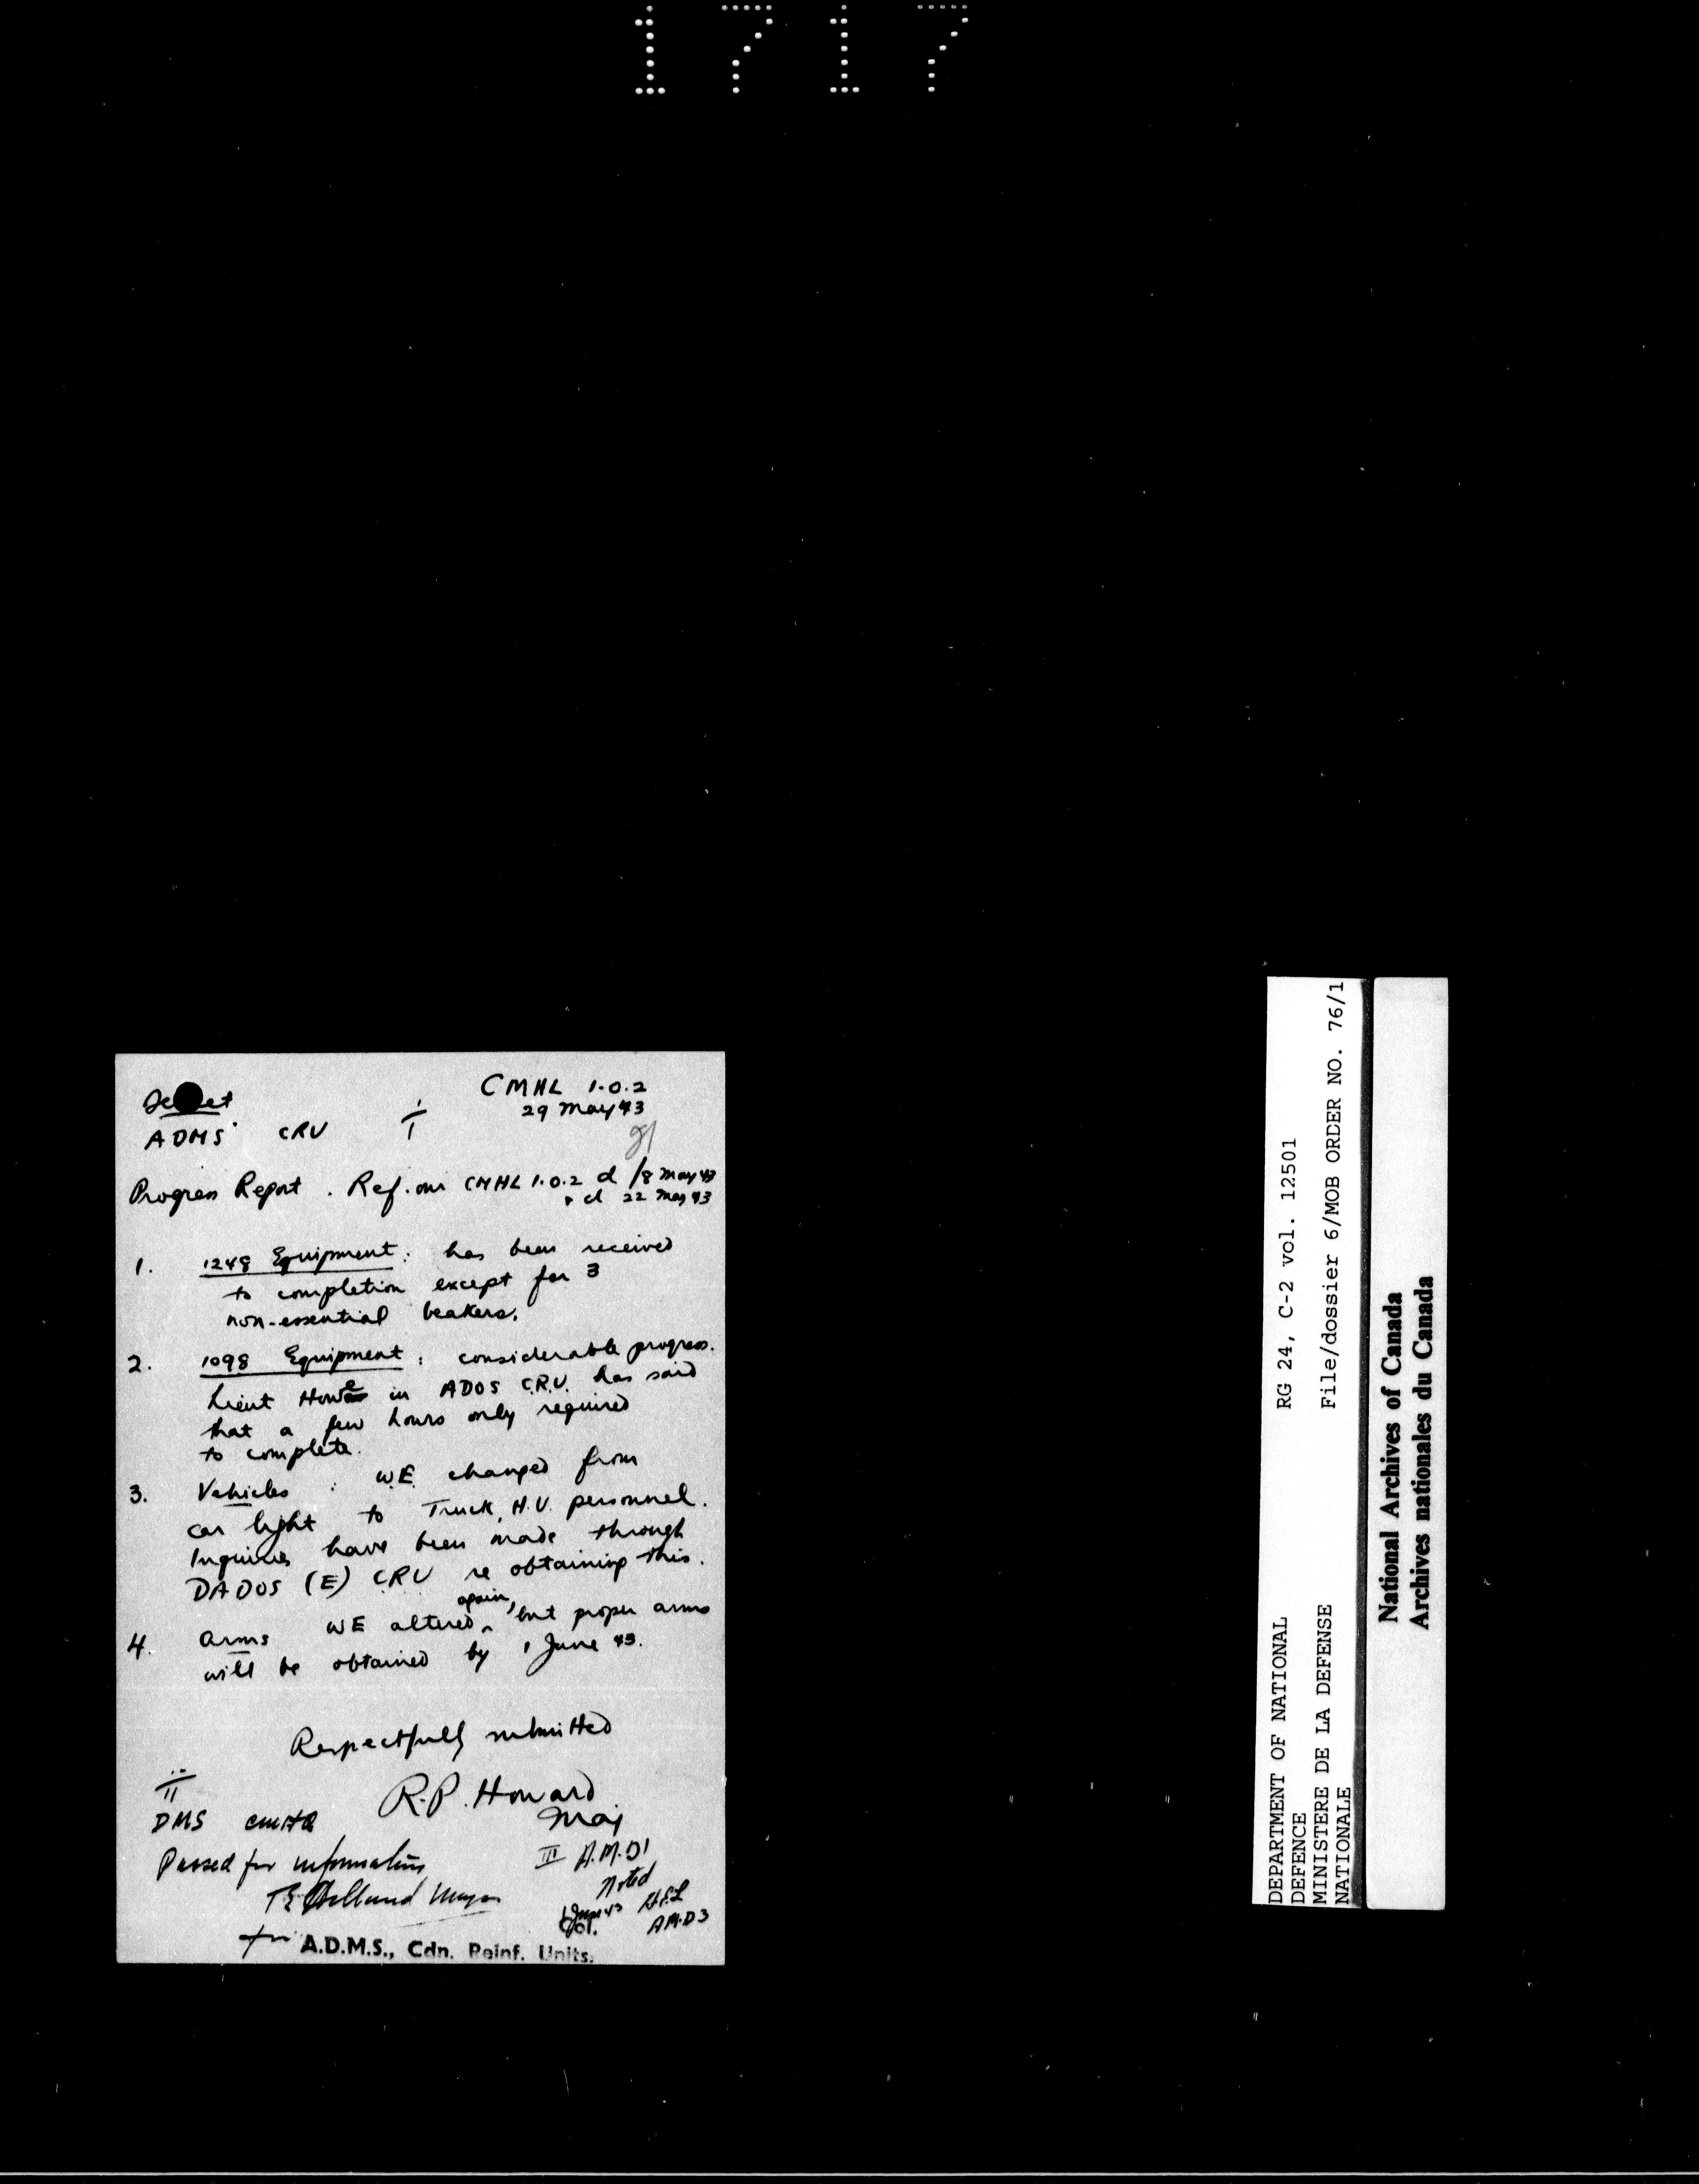 1717
Secret
CMHL 1.0.2
29 May 43
ADMS CRU
I
Progress Report. Ref. our CMHL 1.0.2 d 18 May 43
+ d 22 May 43
1. 1248 Equipment: has been received
to completion except for 3
non-essential beakers.
2. 1098 Equipment: considerable progress.
Lieut Howe in ADOS C.R.U. has said
that a few hours only required
to complete.
3. Vehicles: W.E. changed from
car light to Truck, H.U. personnel.
Inquiries have been made through
DADOS (E) CRU re obtaining this.
4. Arms WE altered again, but proper arms
will be obtained by 1 June 43.
Respectfully submitted
R.P. Howard
Maj
II
DMS CMHQ
Passed for information
Major
for A.D.M.S., Cdn. Reinf. Units.
III A.M.D1
Noted
1 June 43
AMD3
DEPARTMENT OF NATIONAL
DEFENCE
MINISTERE DE LA DEFENSE
NATIONALE
RG 24, C-2 vol. 12501
File/dossier 6/MOB ORDER NO. 76/1
National Archives of Canada
Archives nationales du Canada